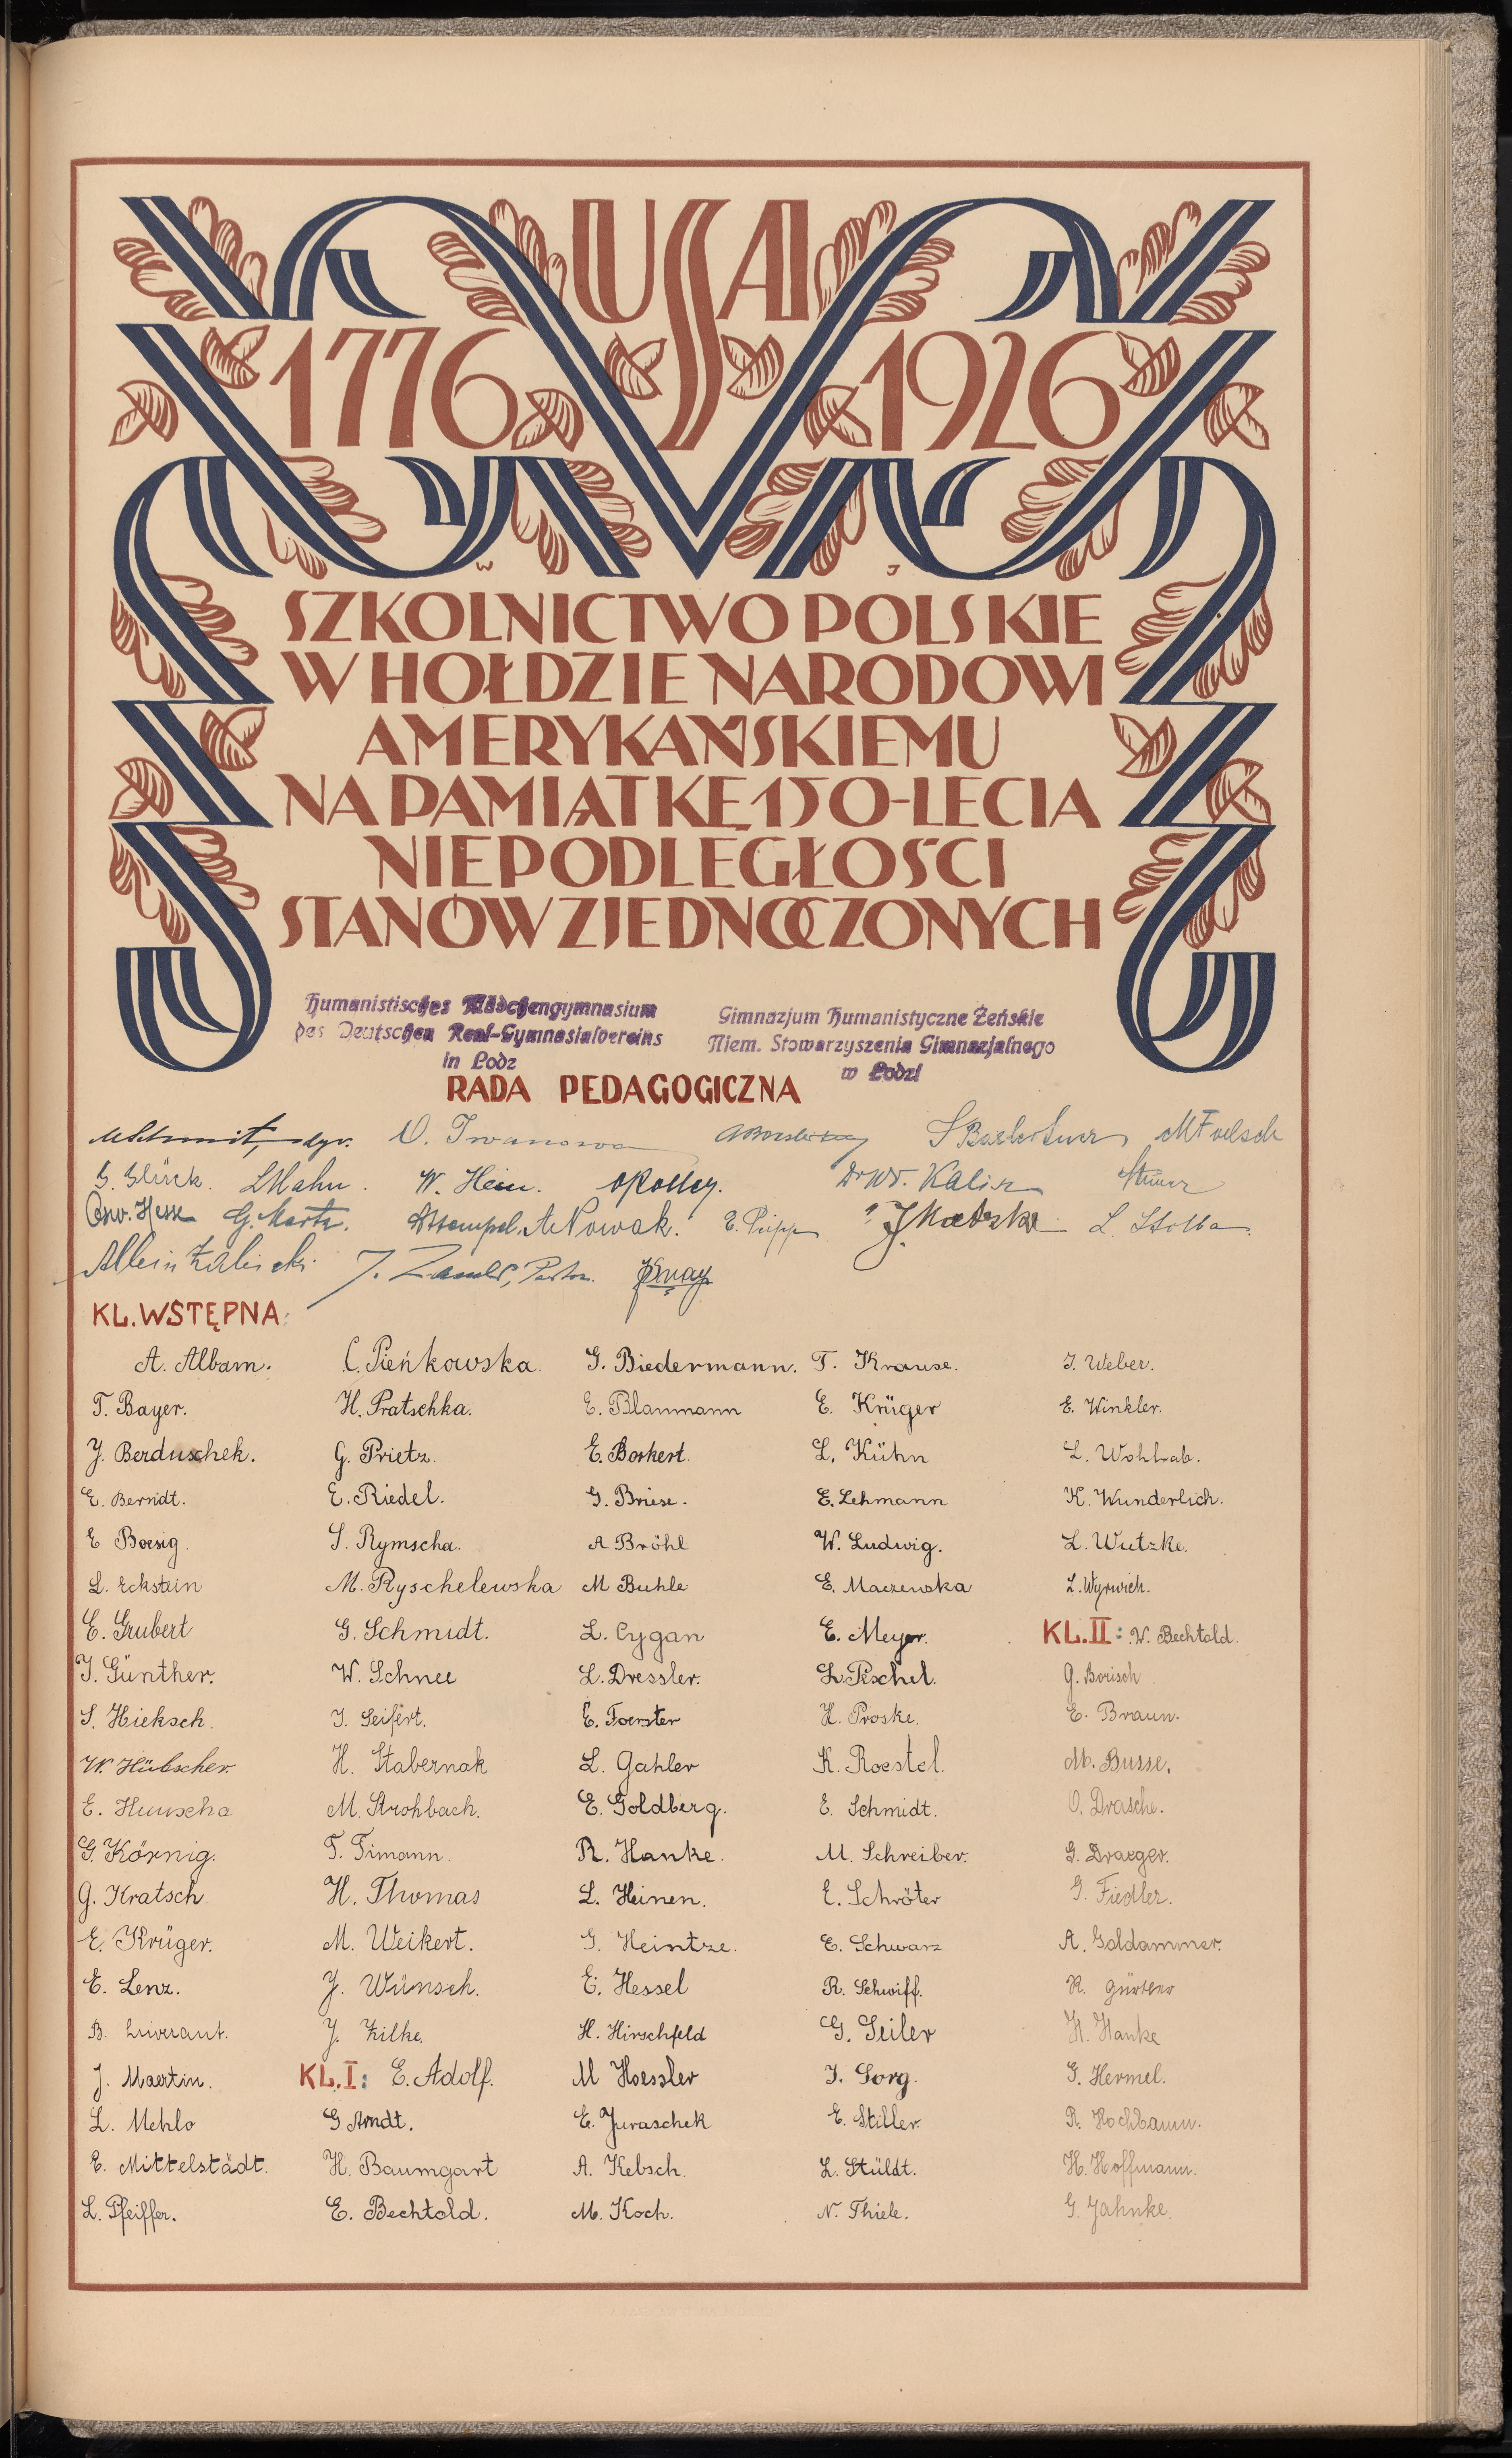 USA
1776 1926
W J
SZKOLNICTWO POLSKIE
W HOŁDZIE NARODOWI
AMERYKAŃSKIEMU
NA PAMIĄTKĘ 150-LECIA
NIEPODLEGŁOŚCI
STANÓW ZJEDNOCZONYCH
Humanistisches Mädchengymnasium
des Deutschen Real-Gymnasialvereins
in Lodz
Gimnazjum Humanistyczne Żeńskie
Niem. Stowarzyszenia Gimnazjalnego
w Łodzi
RADA PEDAGOGICZNA
dyr. O. Iwanowa
G. Glück. LHahn. W. Hein. Dr W. Kalisz
Osw. Hesse G. Martz. A. Nowak. L. Stolba
KL. WSTĘPNA:
A. Albam.
T. Bayer.
J. Berduschek.
E. Berndt.
E Boesig.
L. Eckstein
E. Grubert
I. Günther.
S. Hieksch.
W. Hübscher.
E. Huuscha
G. Körnig.
G. Kratsch
E. Krüger.
E. Lenz.
B.
J. Maertin.
L. Mehlo
E. Mittelstädt.
L. Pfeiffer.
C. Pieńkowska.
H. Pratschka.
G. Prietz.
E. Riedel.
S. Rymscha.
M. Ryschelewska
G. Schmidt.
W. Schnee
I. Seifert.
H. Stabernak
M. Strohbach.
T. Timann.
H. Thomas
M. Weikert.
J. Wünsch.
J. Zilke.
KL. I: E. Adolf.
G. Arndt.
H. Baumgart
E. Bechtold.
G. Biedermann.
E. Blanmann
E. Borkert.
G. Briese.
A Bröhl
M Buhle
L. Cygan
L. Dressler.
E. Foerster
L. Gahler
E. Goldberg.
R. Hanke.
L. Heinen.
G. Heintze.
E. Hessel
H. Hirschfeld
M Hoessler
E. Juraschek
A. Kebsch.
M. Koch.
T. Krause.
E. Krüger
L. Kühn
E. Lehmann
W. Ludwig.
E. Maczewska
E. Meyer.
L. Pischel.
H. Proske.
K. Roestel.
E. Schmidt.
M. Schreiber.
E. Schröter
E. Schwarz
R. Schwiff.
G. Seiler
I. Sorg.
E. Stiller.
L. Stüldt.
N. Thiele.
I. Weber.
E. Winkler.
L. Wohlrab.
K. Wunderlich.
L. Wutzke.
L. Wyrwich.
KL. II: W. Bechtold.
G. Borisch
E. Braun.
M. Busse.
O. Drasche.
G. Draeger.
G. Fiedler.
A. Goldammer.
R. Gürtler
H. Hanke
G. Hermel.
R. Hochbaum.
H. Hoffmann.
G. Jahnke.